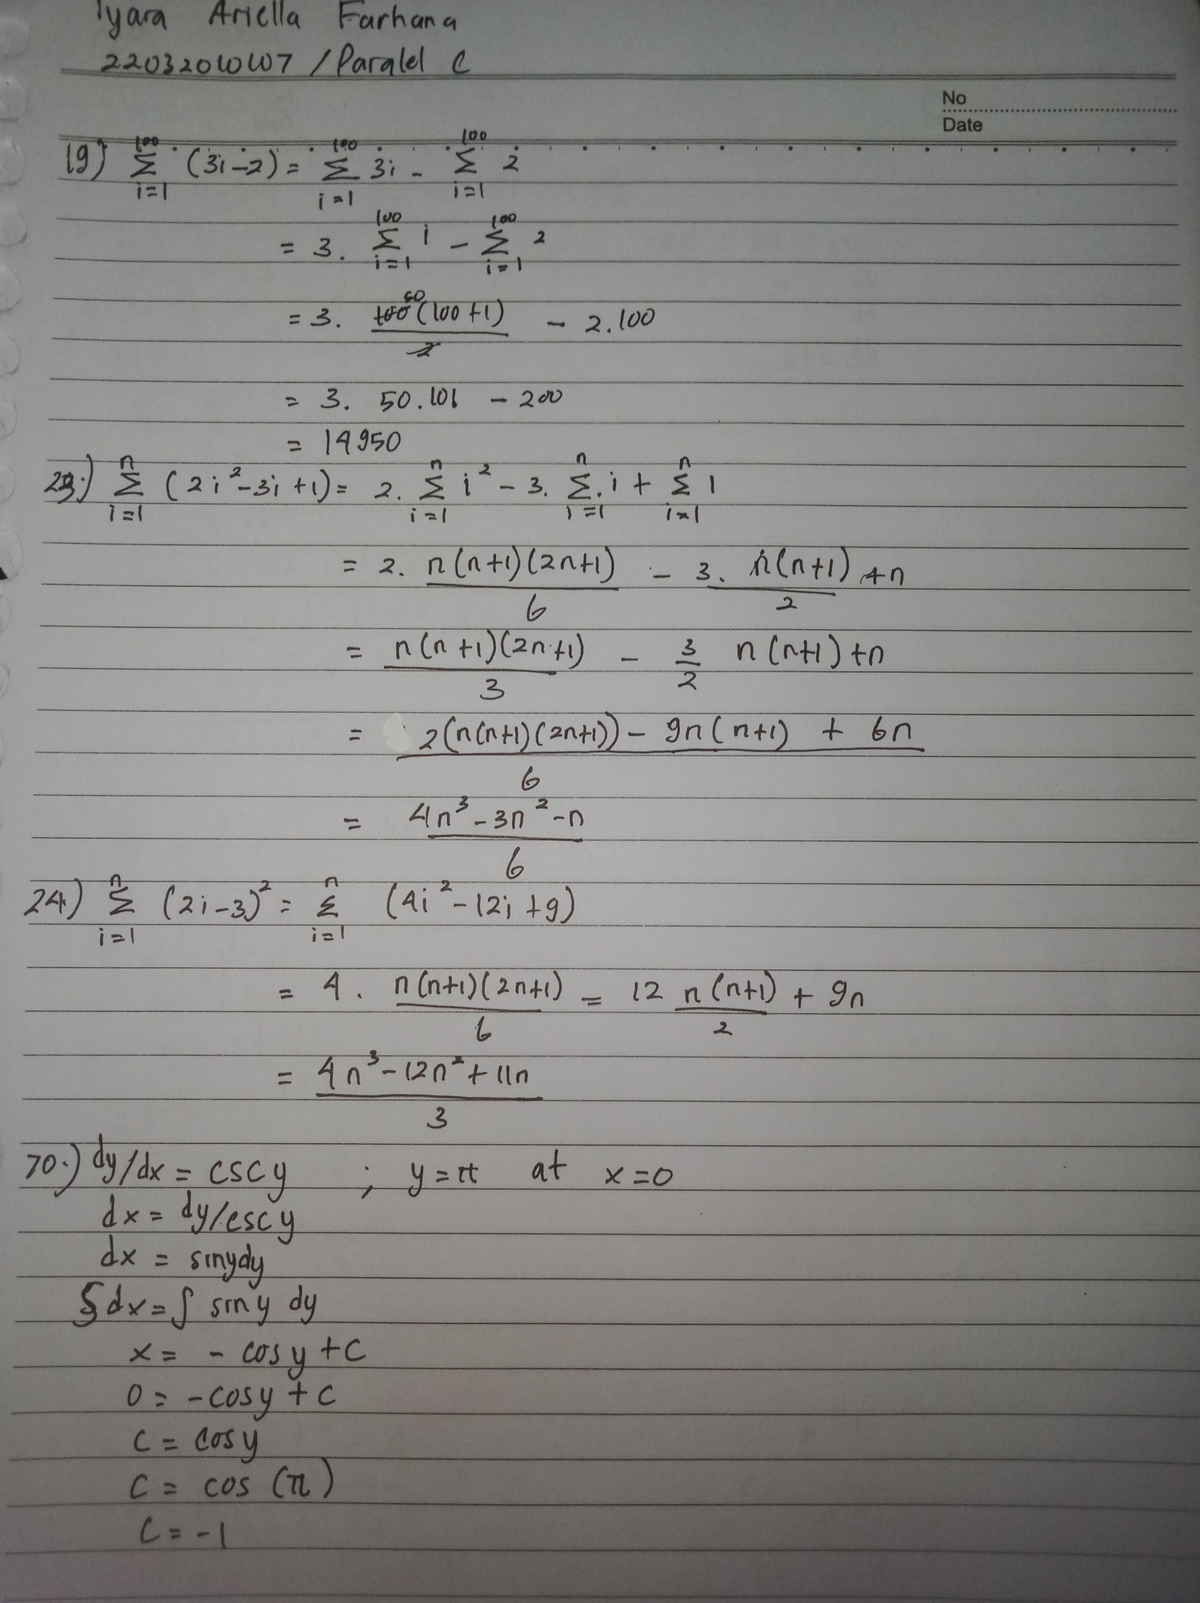 Tyara Ariella Farhana
22032010107 / Paralel C
No
Date
19) 100 Σ i=1 (3i-2) = 100 Σ i=1 3i - 100 Σ i=1 2
= 3. 100 Σ i=1 i - 100 Σ i=1 2
= 3. 100 50 (100+1) / 2 - 2.100
= 3. 50.101 - 200
= 14950
23.) n Σ i=1 (2i²-3i+1) = 2. n Σ i=1 i² - 3. n Σ i=1 i + n Σ i=1 1
= 2. n(n+1)(2n+1) / 6 - 3. n(n+1) / 2 + n
= n(n+1)(2n+1) / 3 - 3/2 n(n+1)+n
= 2(n(n+1)(2n+1)) - 9n(n+1) + 6n / 6
= 4n³-3n²-n / 6
24.) n Σ i=1 (2i-3)² = n Σ i=1 (4i²-12i+9)
= 4. n(n+1)(2n+1) / 6 = 12 n(n+1) / 2 + 9n
= 4n³-12n²+11n / 3
70.) dy/dx = csc y ; y=π at x=0
dx = dy/csc y
dx = sin y dy
∫dx = ∫ sin y dy
x = - cos y + C
0 = -cos y + C
C = cos y
C = cos (π)
C = -1